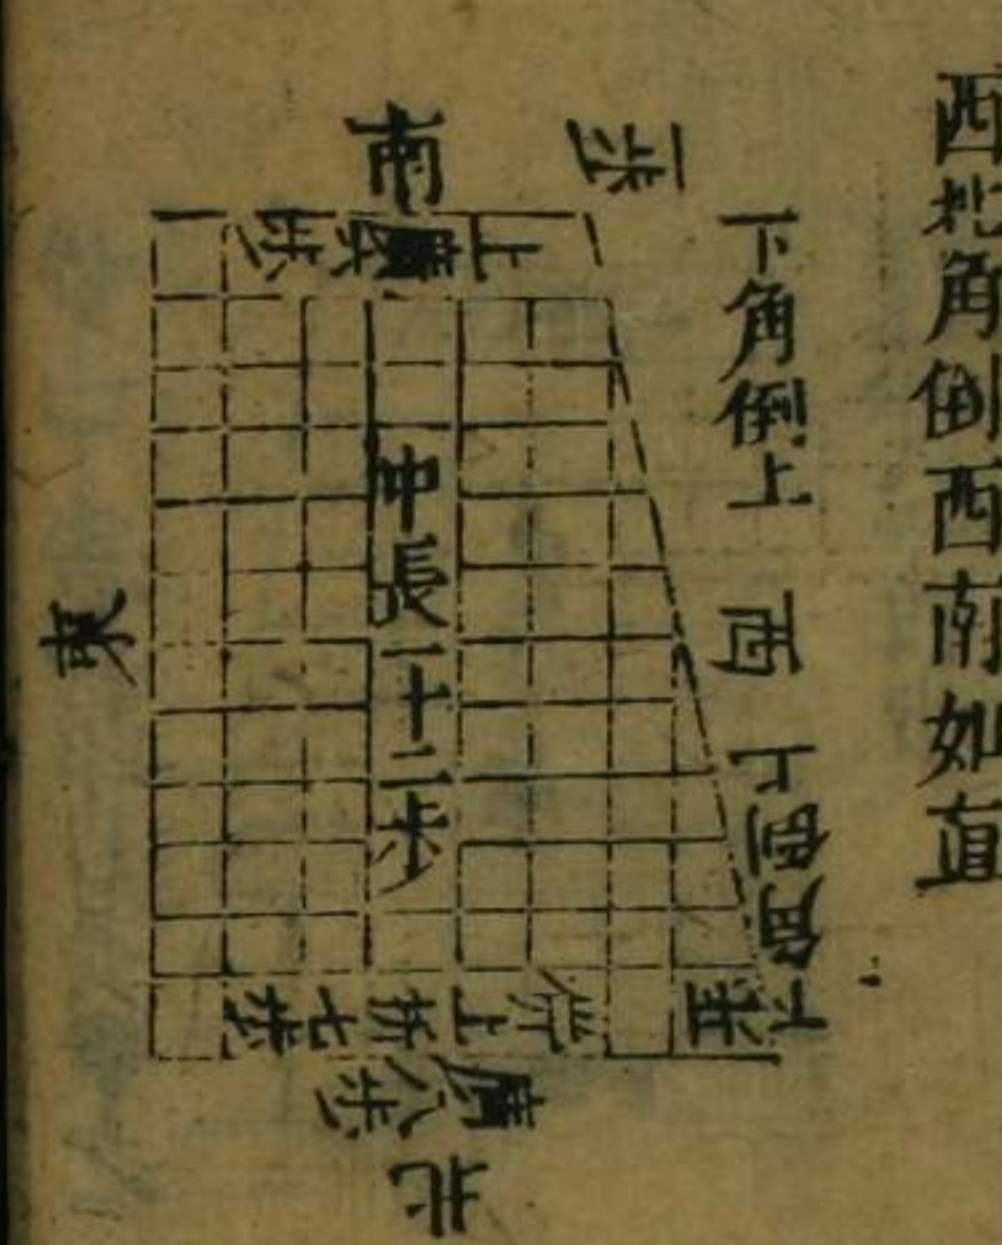 西北角倒西西南如直
下角倒上
西
南
一步
上廣六步
東
中長一十二步
上折七步
廣八步
北